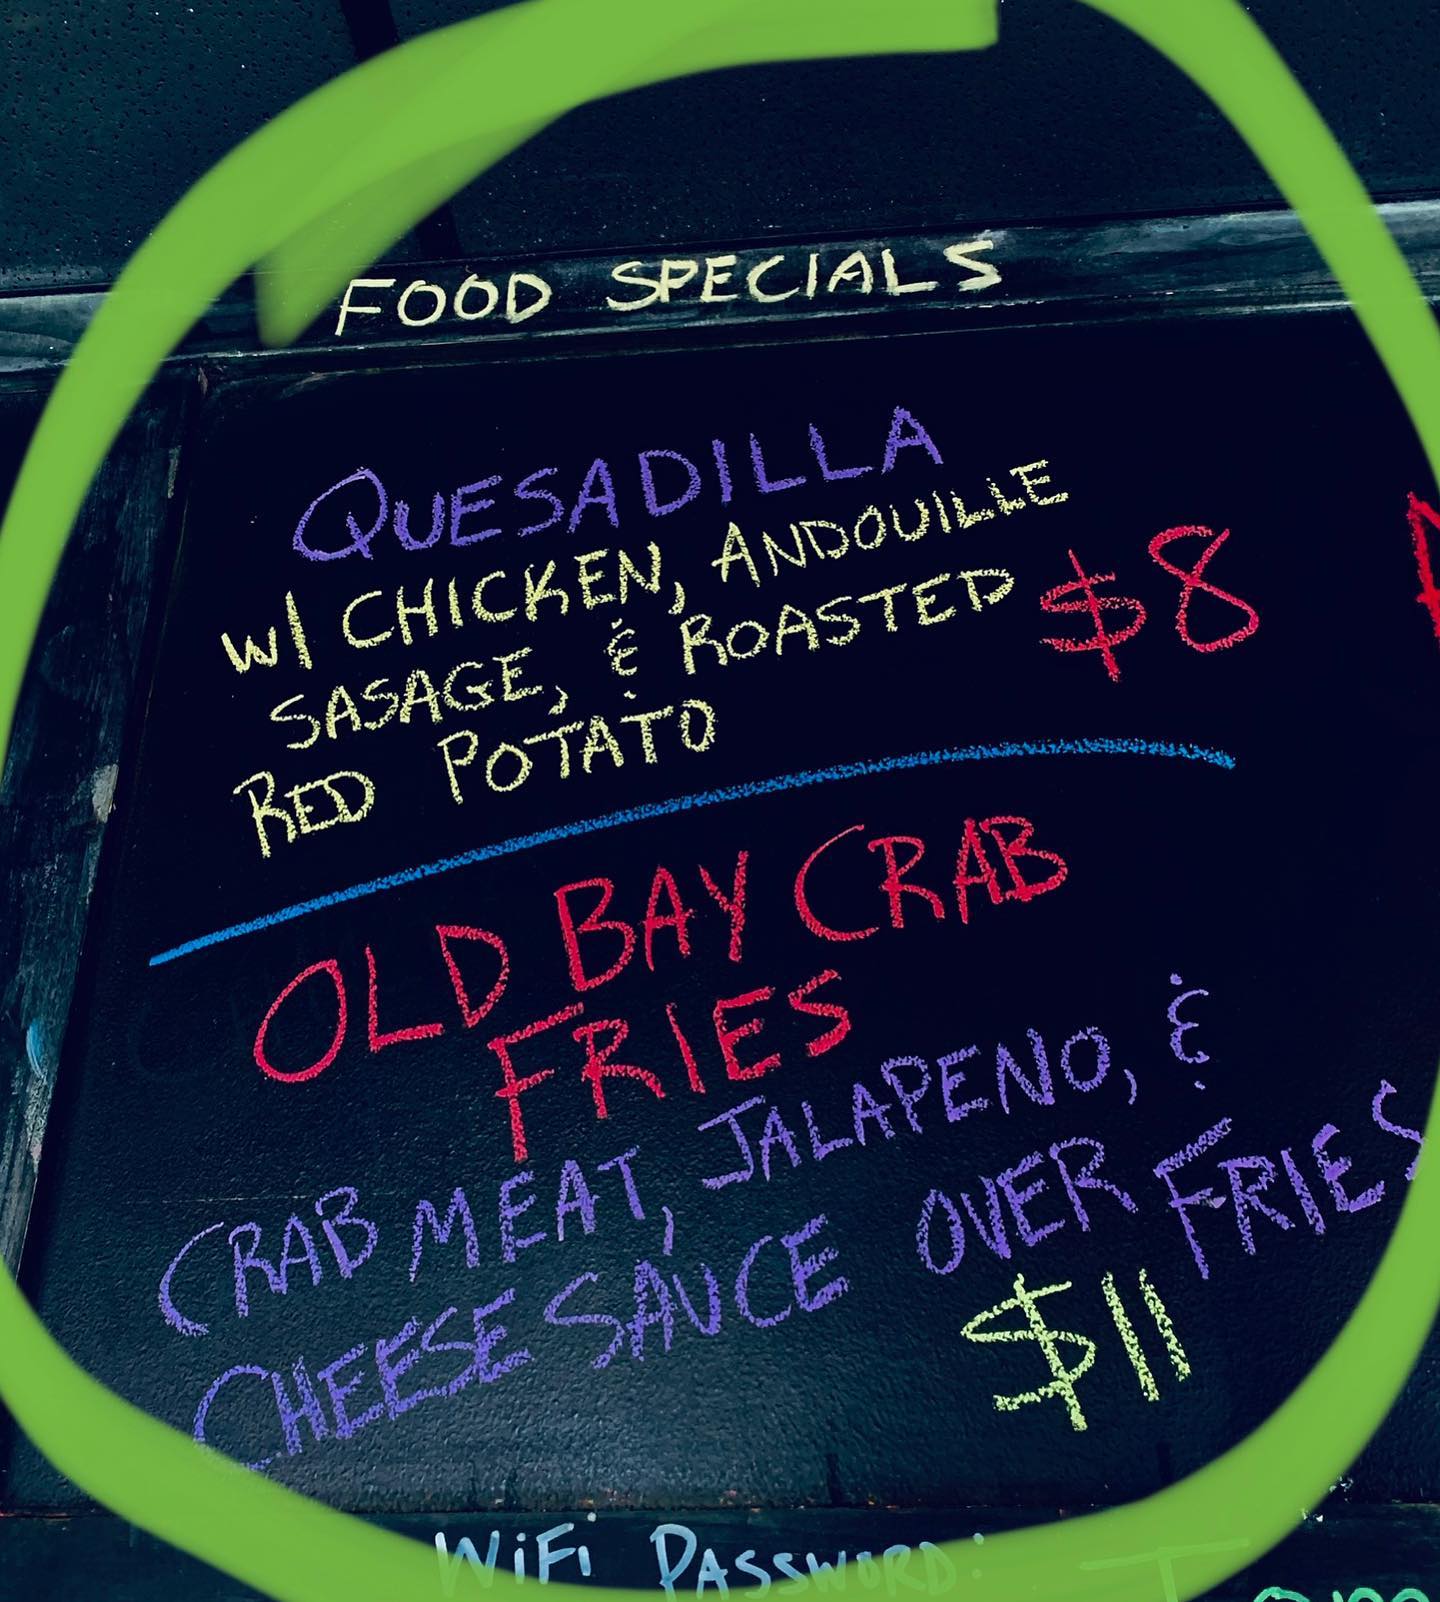 FOOD SPECIALS
QUESADILLA
W/ CHICKEN, ANDOUILLE
SASAGE, & ROASTED $8
RED POTATO
OLD BAY CRAB
FRIES
CRAB MEAT, JALAPENO, &
CHEESE SAUCE OVER FRIES
$11
WiFi PASSWORD: